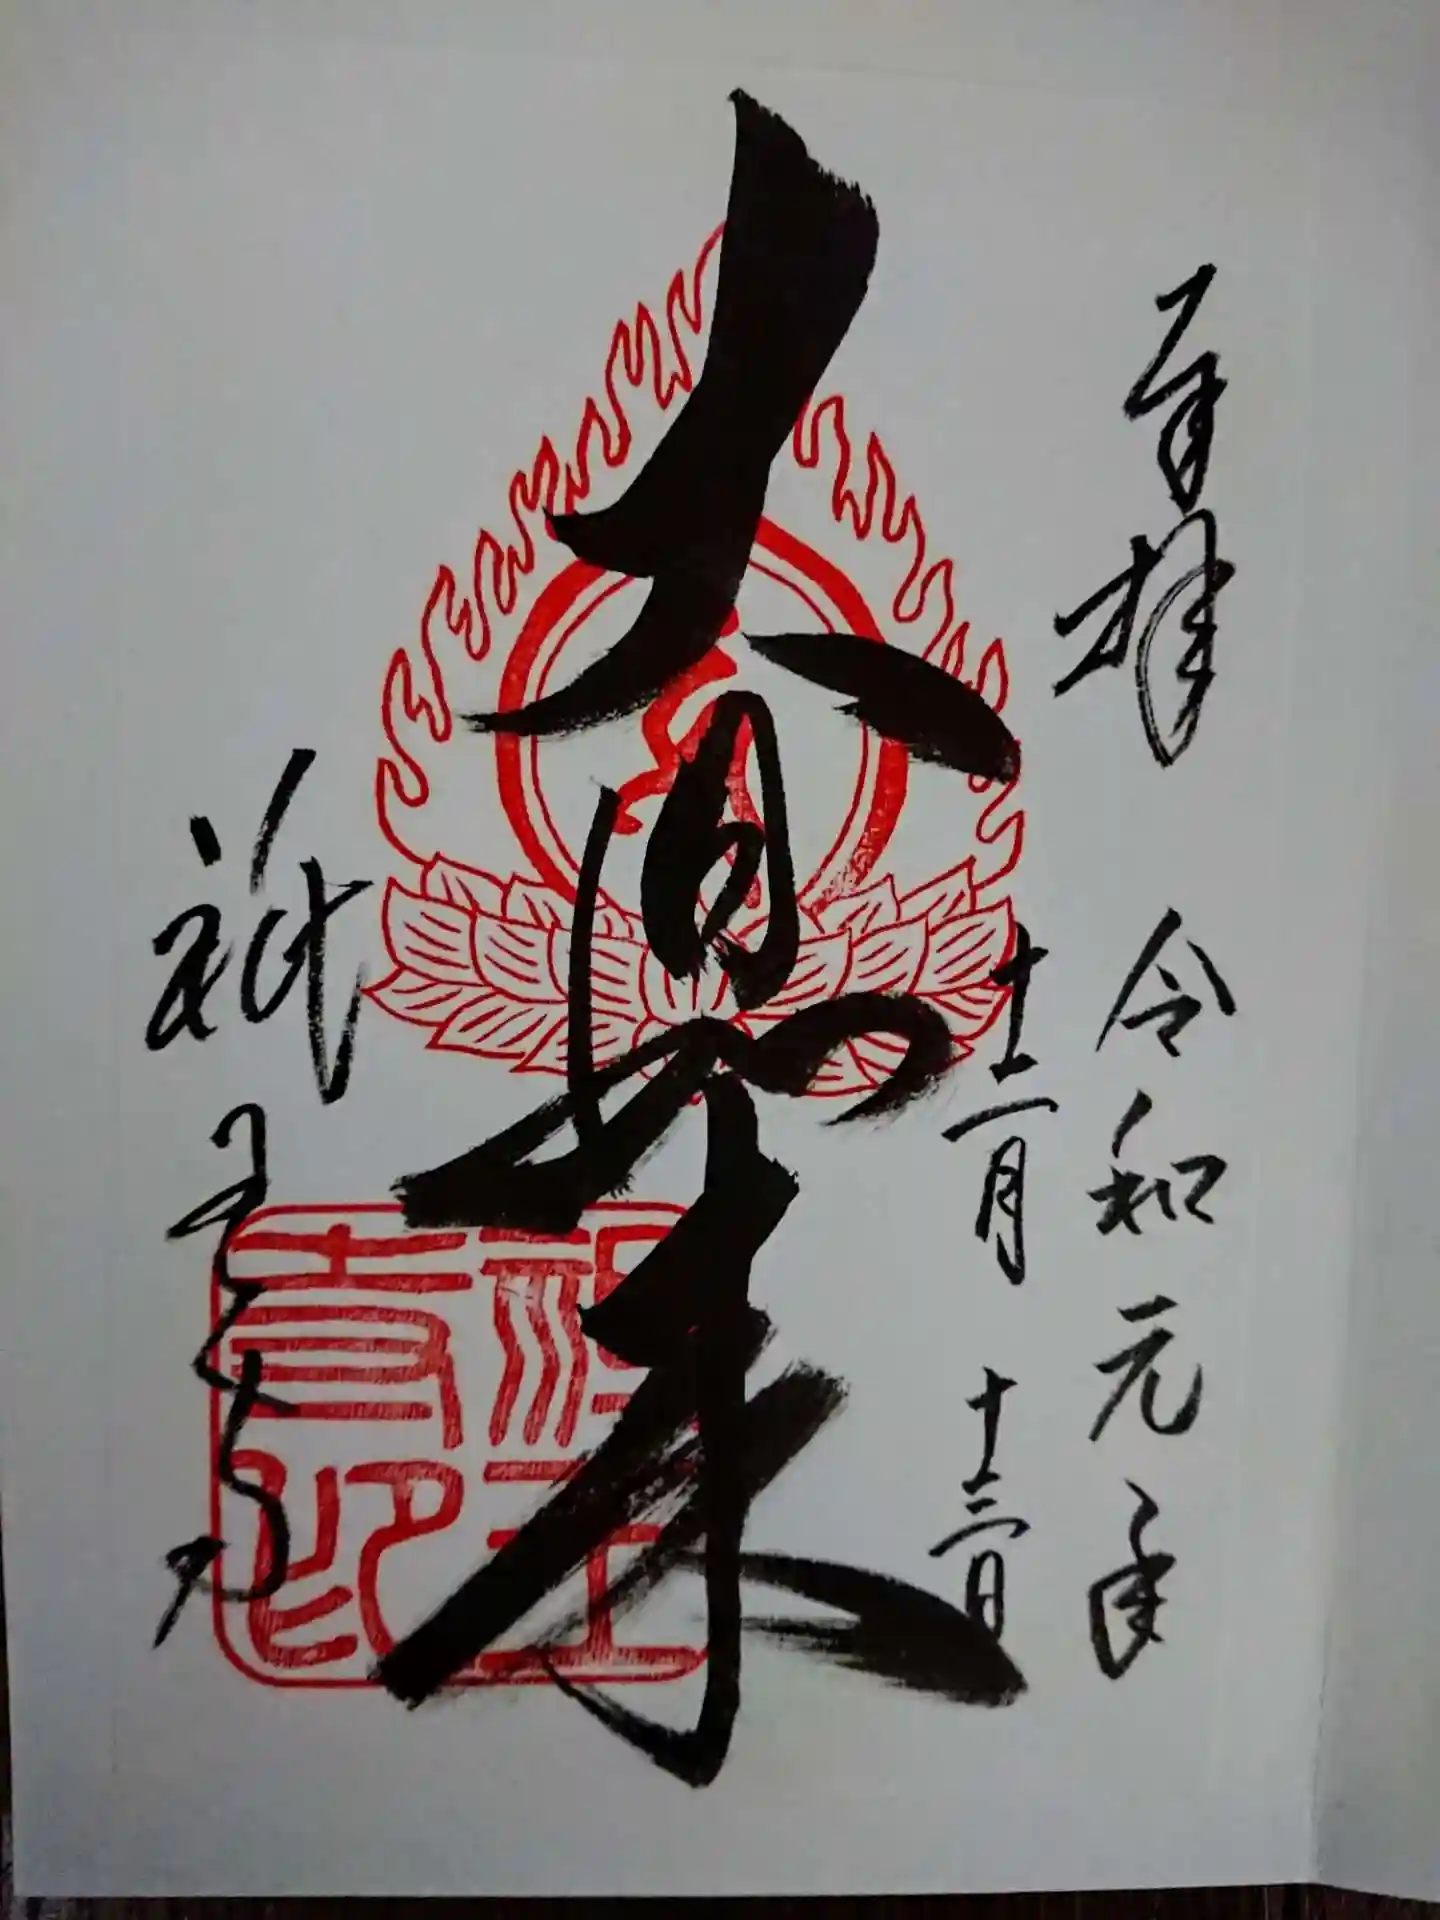 奉拝　令和元年
十二月十三日
大日如来
祇王寺
祇王寺印